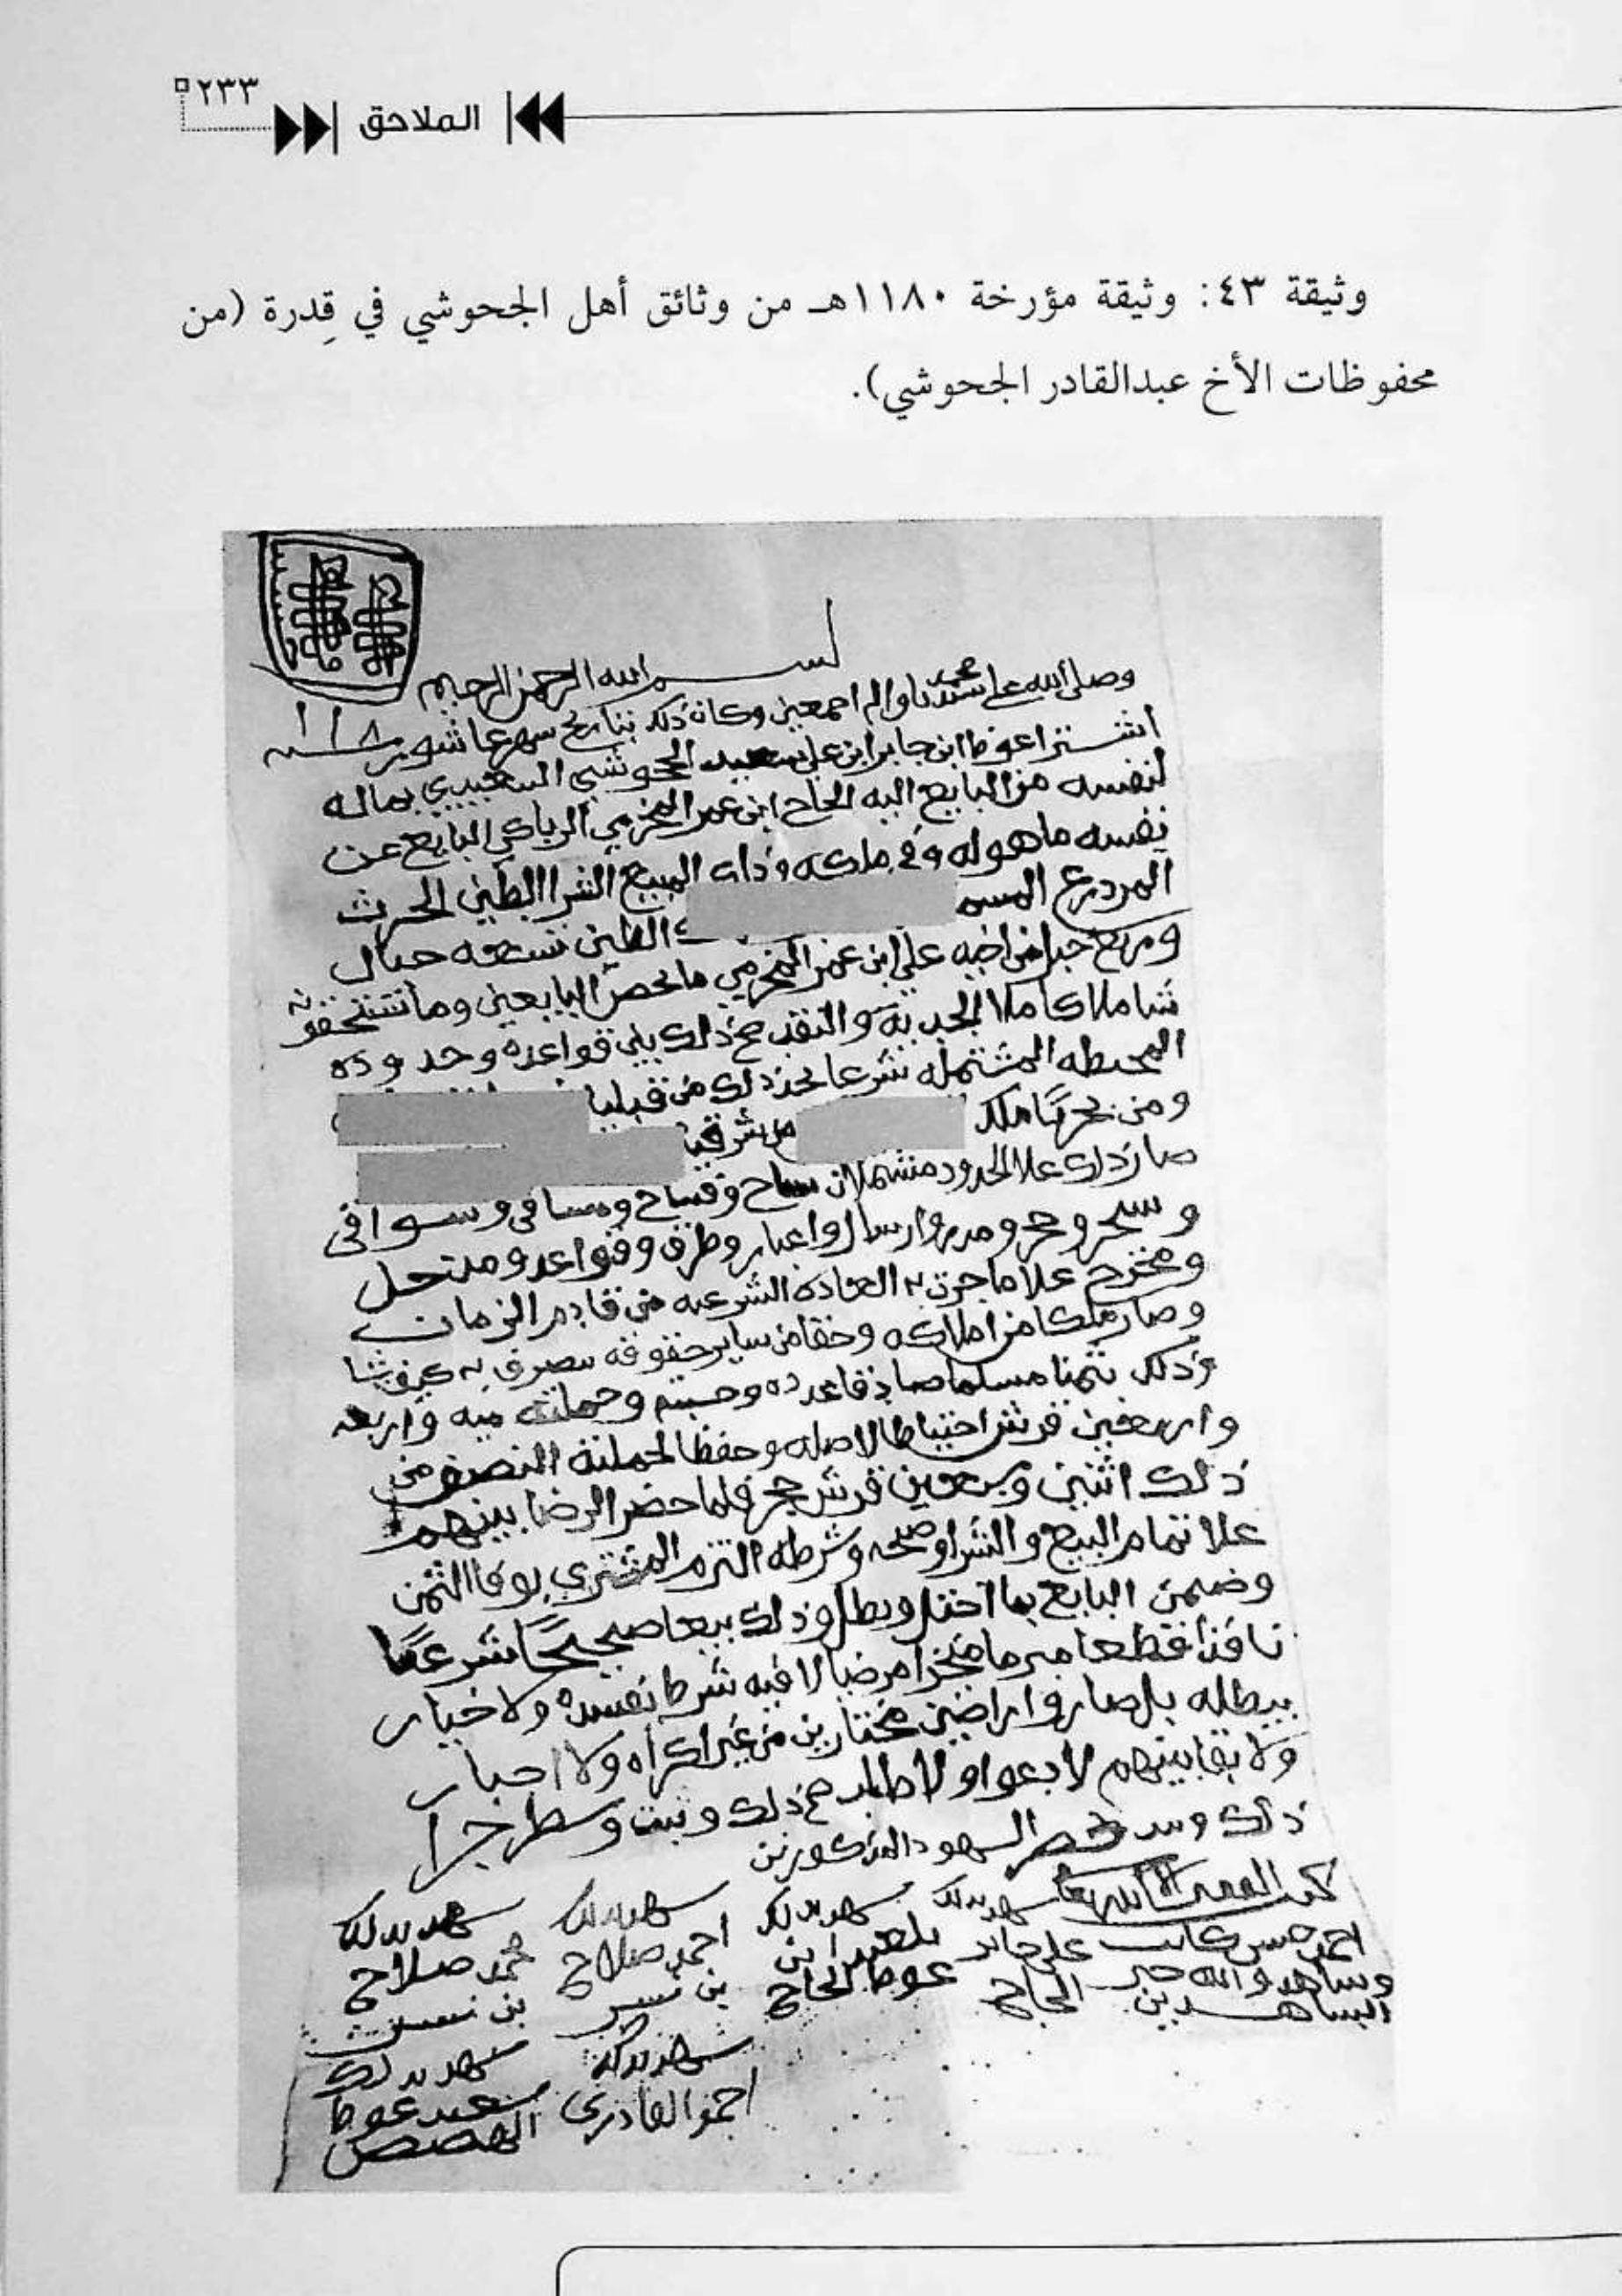 ٢٣٣
الملاحق
وثيقة ٤٣: وثيقة مؤرخة ١١٨٠هـ من وثائق أهل الجحوشي في قِدرة (من
محفوظات الأخ عبدالقادر الجحوشي).
بسم الله الرحمن الرحيم
وصلى الله على سيدنا محمد واله اجمعين وكان ذلك بتاريخ شهر عاشور سنه
اشترا عوض ابن جابر ابن علي سعيد الجحوشي السعيدي بماله
لنفسه من البايع اليه الحاج ابن عمر المخرمي الرباكي البايع عن
نفسه ما هو له وفي ملكه وذلك المبيع الشرا الطين الحرث
المردرع المسم
الطين تسعه حبال
وربع حبل من اخيه علي ابن عمر المخرمي ما يخص البايعين وما تستحقونه
شاملا كاملا الجربه والنقد صح ذلك بين قواعده وحدوده
المحيطه المشتمله شرعا يحد ذلك من قبليا
ومن بحريا ملك من شرقيا
صار ذلك علا الحدود مشتملان وفساح ومساقي وسواقي
وارسال واعبار وطرق وقواعد ومدخل
ومخرج علا ما جرت به العاده الشرعيه من قادم الزمان
وصار ملكا من املاكه وحقا من ساير حقوقه يصرف به كيف يشا
وذلك بثمنا مسلما قاعدده وحسبته وجملته ميه واربعه
واربعين قرش احتياطا لاصله وحفظا لجملته النصف من
ذلك اثنين وسبعين قرش حجر فلما حضر الرضا بينهم
علا تمام البيع والشرا وصحه وشرطه التزم المشتري بوفا الثمن
وضمن البايع بما اختل وبطل وذلك بيعا صحيحا شرعيا
نافذا قطعا مبرما منجزا مرضيا لا فيه شرط يفسده ولا خيار
يبطله بل صاروا راضين مختارين من غير اكراه ولا اجبار
ولا بقا بينهم لا دعوا ولا طلب صح ذلك وثبت وسطر جرا
ذلك الشهود المذكورين
شهد بذلك شهد بذلك شهد بذلك شهد بذلك
احمد حسن كاتب علي جابر احمد صلاح محمد صلاح
وشاهد والله خير الحاج عوض الحاج
الشاهدين
شهد بذلك شهد بذلك
احمد القادري سعيد عوض